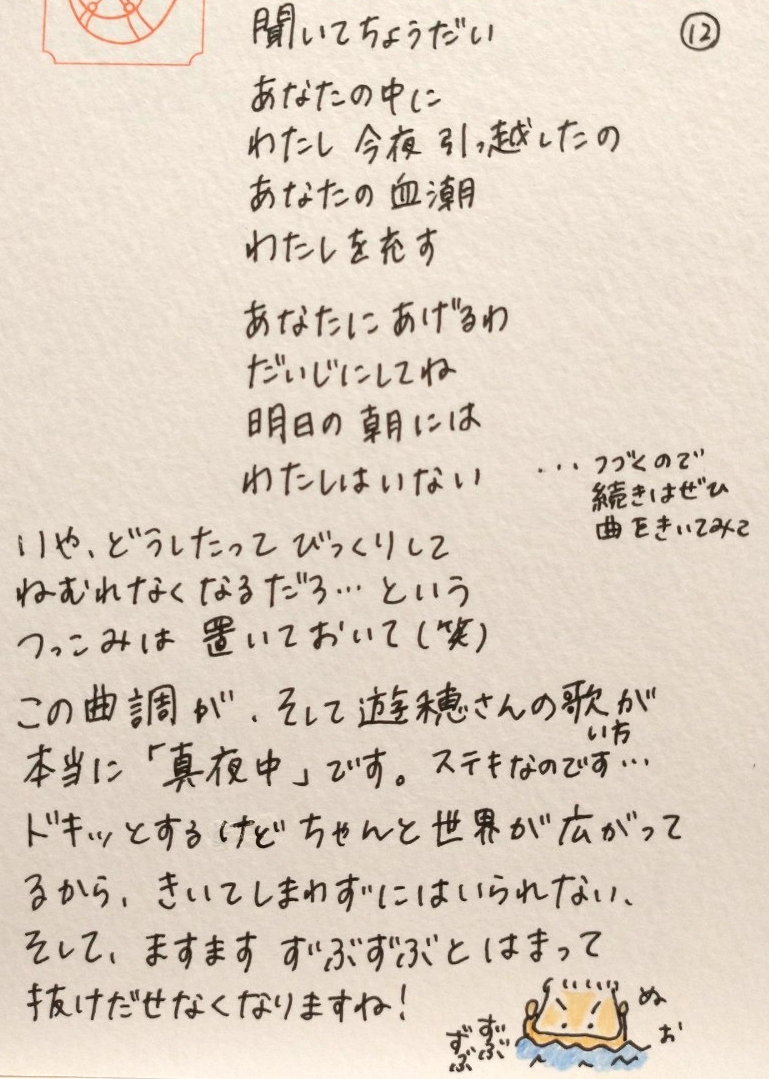 ⑫
聞いてちょうだい
あなたの中に
わたし 今夜 引っ越したの
あなたの 血潮
わたしを充す
あなたに あげるわ
だいじにしてね
明日の 朝には
わたしはいない
...つづくので
続きはぜひ
曲をきいてみて
いや、どうしたって びっくりして
ねむれなくなるだろ… という
つっこみは 置いておいて(笑)
この曲調が、そして遊穂さんの歌が
いち
本当に「真夜中」です。ステキなのです…
ドキッとするけど ちゃんと世界が広がって
るから、きいてしまわずにはいられない、
そして、ますます ずぶずぶと はまって
抜けだせなくなりますね!
ずぶ
ずぶ
ぬ
お